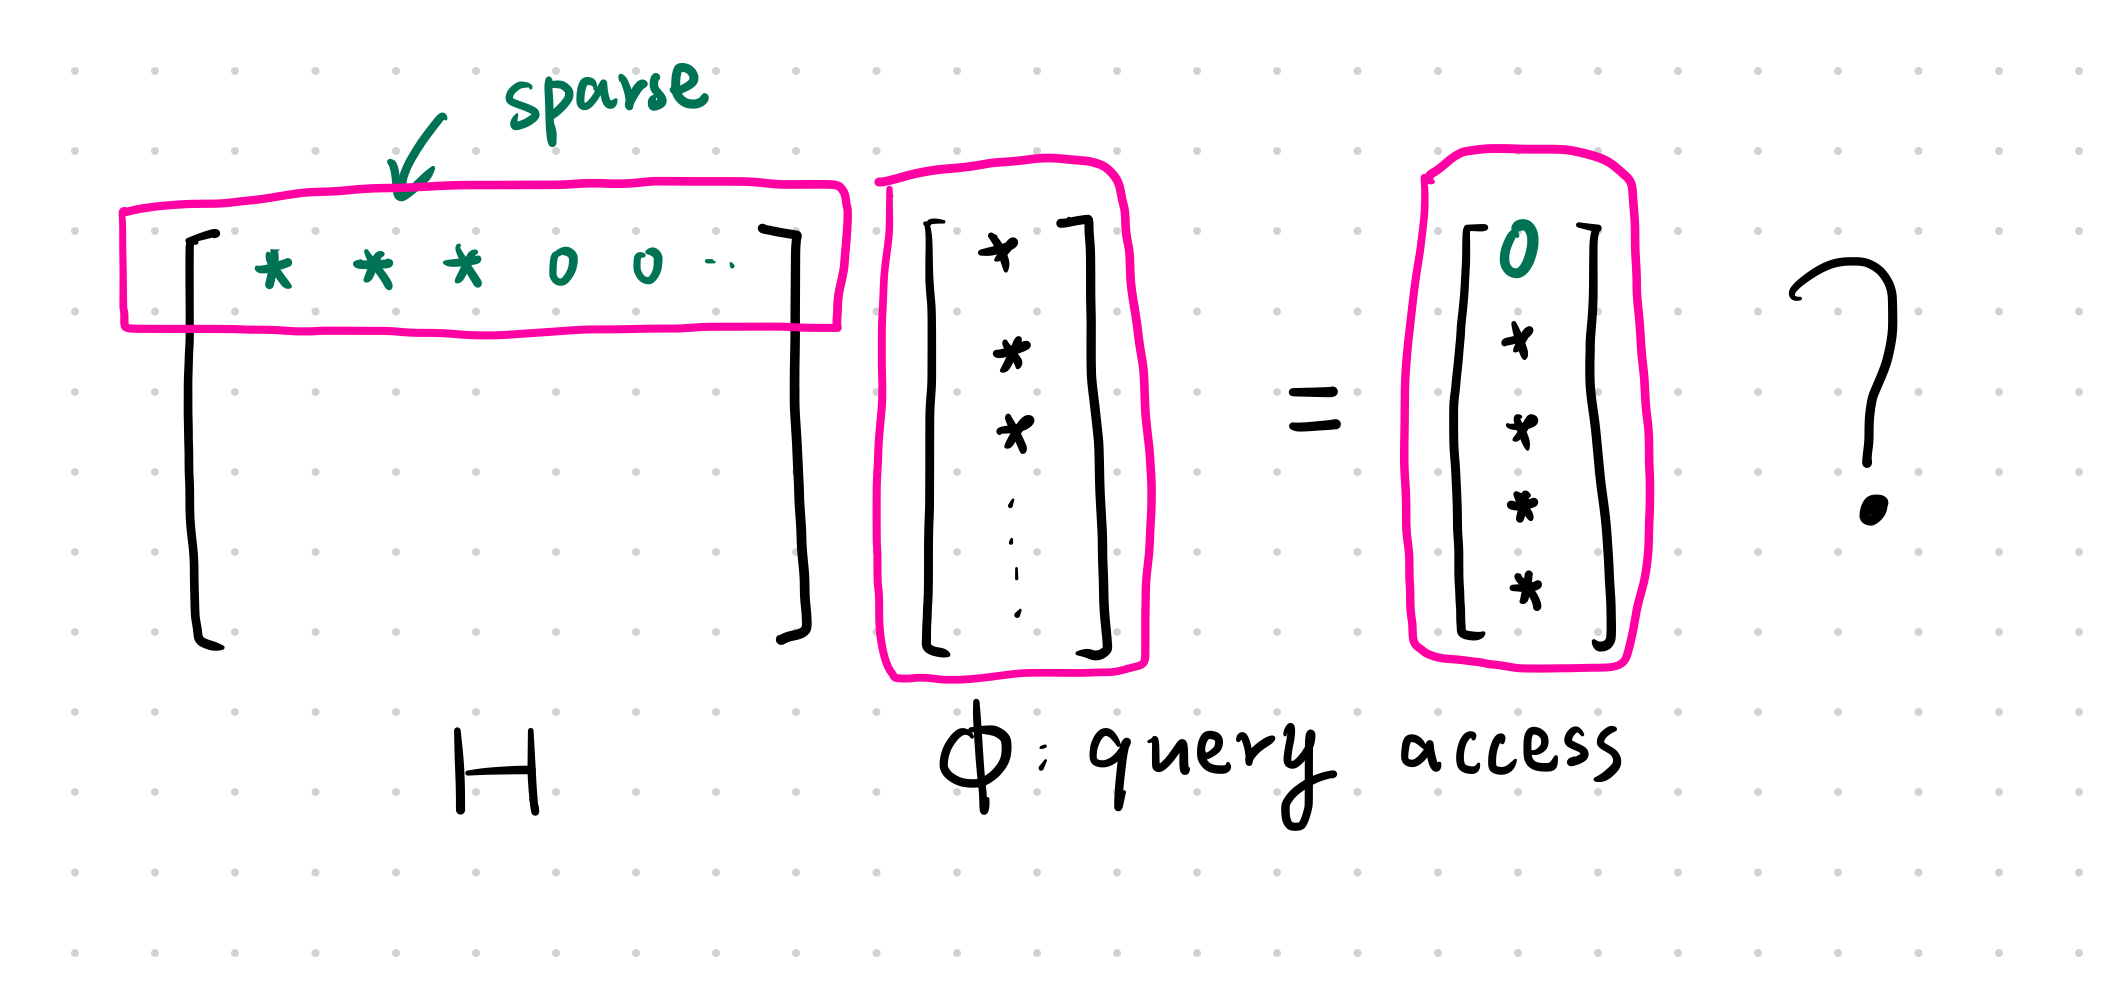 sparse
[ * * * 0 0 ··· ] [ * * * ⋮ ] = [ 0 * * * * ] ?
H
ϕ: query access